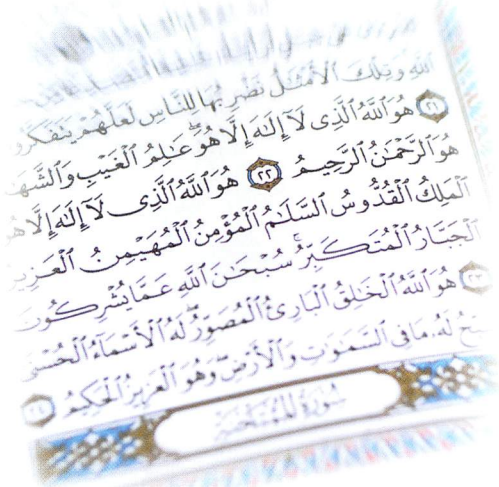 ٱللَّهِ وَتِلۡكَ ٱلۡأَمۡثَٰلُ نَضۡرِبُهَا لِلنَّاسِ لَعَلَّهُمۡ يَتَفَكَّرُو
٢١ هُوَ ٱللَّهُ ٱلَّذِي لَآ إِلَٰهَ إِلَّا هُوَۖ عَٰلِمُ ٱلۡغَيۡبِ وَٱلشَّهَ
هُوَ ٱلرَّحۡمَٰنُ ٱلرَّحِيمُ ٢٢ هُوَ ٱللَّهُ ٱلَّذِي لَآ إِلَٰهَ إِلَّا هُو
ٱلۡمَلِكُ ٱلۡقُدُّوسُ ٱلسَّلَٰمُ ٱلۡمُؤۡمِنُ ٱلۡمُهَيۡمِنُ ٱلۡعَزِيز
ٱلۡجَبَّارُ ٱلۡمُتَكَبِّرُۚ سُبۡحَٰنَ ٱللَّهِ عَمَّا يُشۡرِكُونَ
٢٣ هُوَ ٱللَّهُ ٱلۡخَٰلِقُ ٱلۡبَارِئُ ٱلۡمُصَوِّرُۖ لَهُ ٱلۡأَسۡمَآءُ ٱلۡحُسۡنَ
حُ لَهُۥ مَا فِي ٱلسَّمَٰوَٰتِ وَٱلۡأَرۡضِۖ وَهُوَ ٱلۡعَزِيزُ ٱلۡحَكِيمُ ٢٤
سُورَةُ ٱلۡمُمۡتَحنَةِ